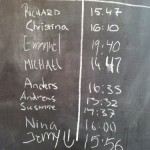 RICHARD 15.47
Christina 16:10
Emanuel 19:40
MICHAEL 14:47
Anders 16:35
Andreas 13:32
Susanne 14:37
Nina 16:00
Jenny 15:56